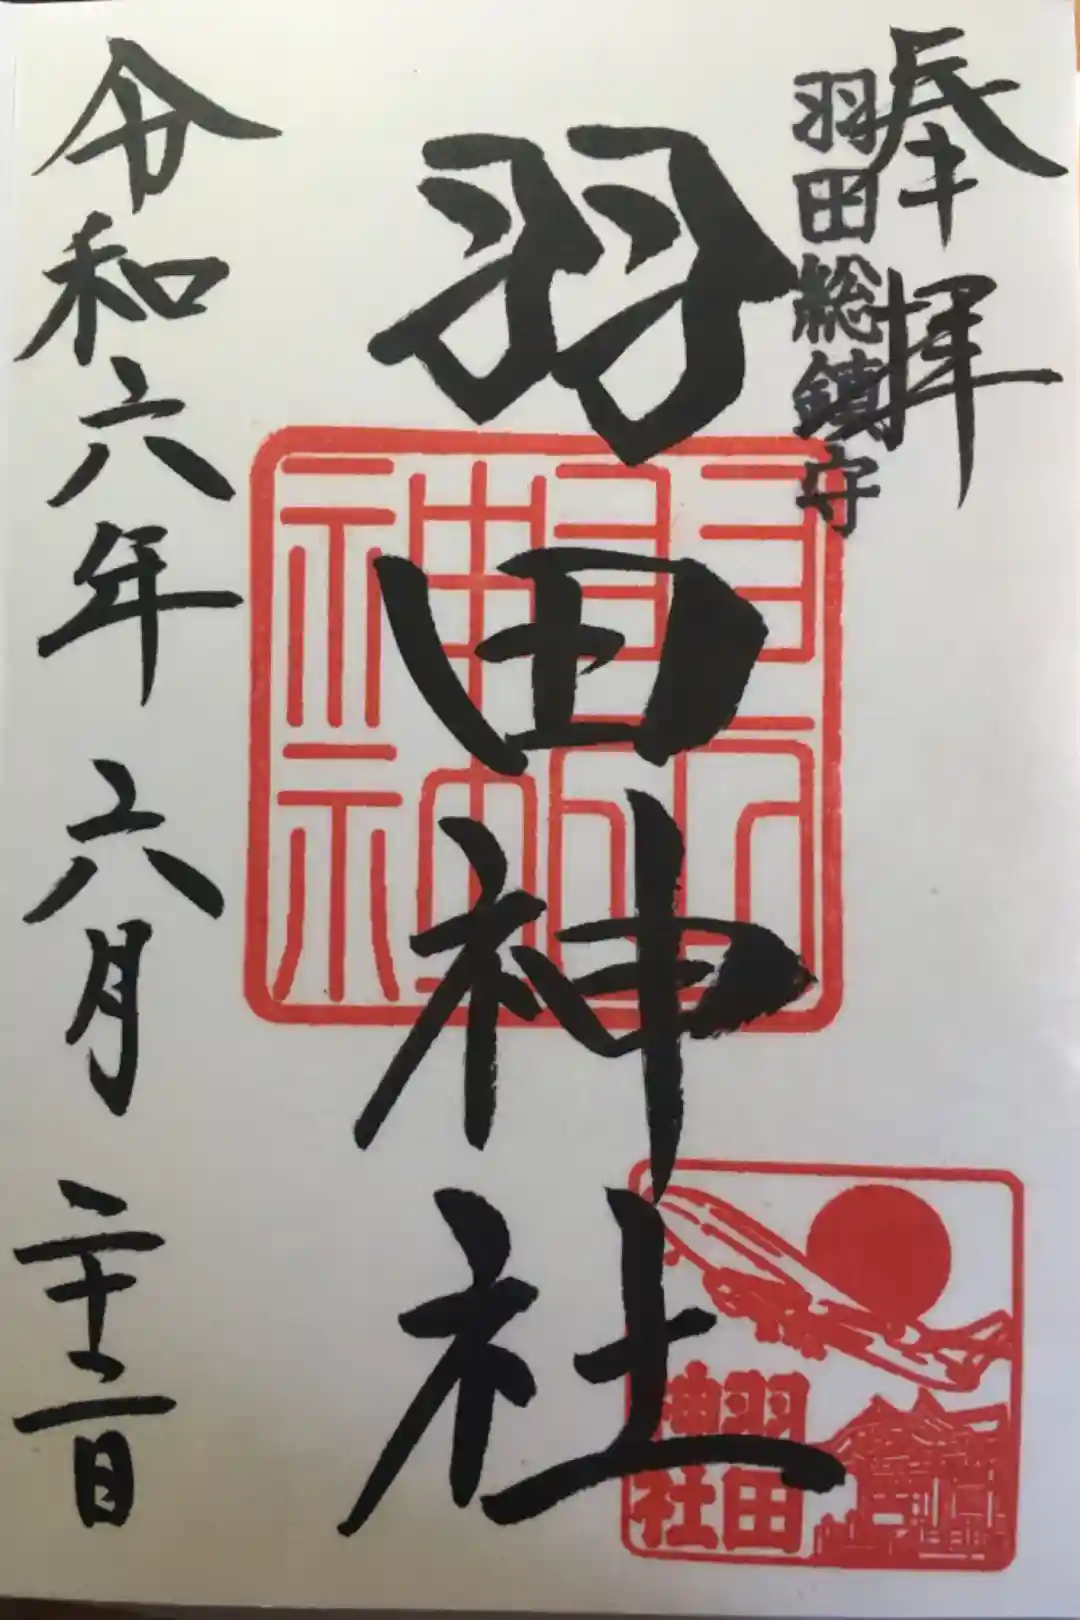 奉拝
羽田総鎮守
羽田神社
羽田神社
羽田
神社
令和六年六月二十二日